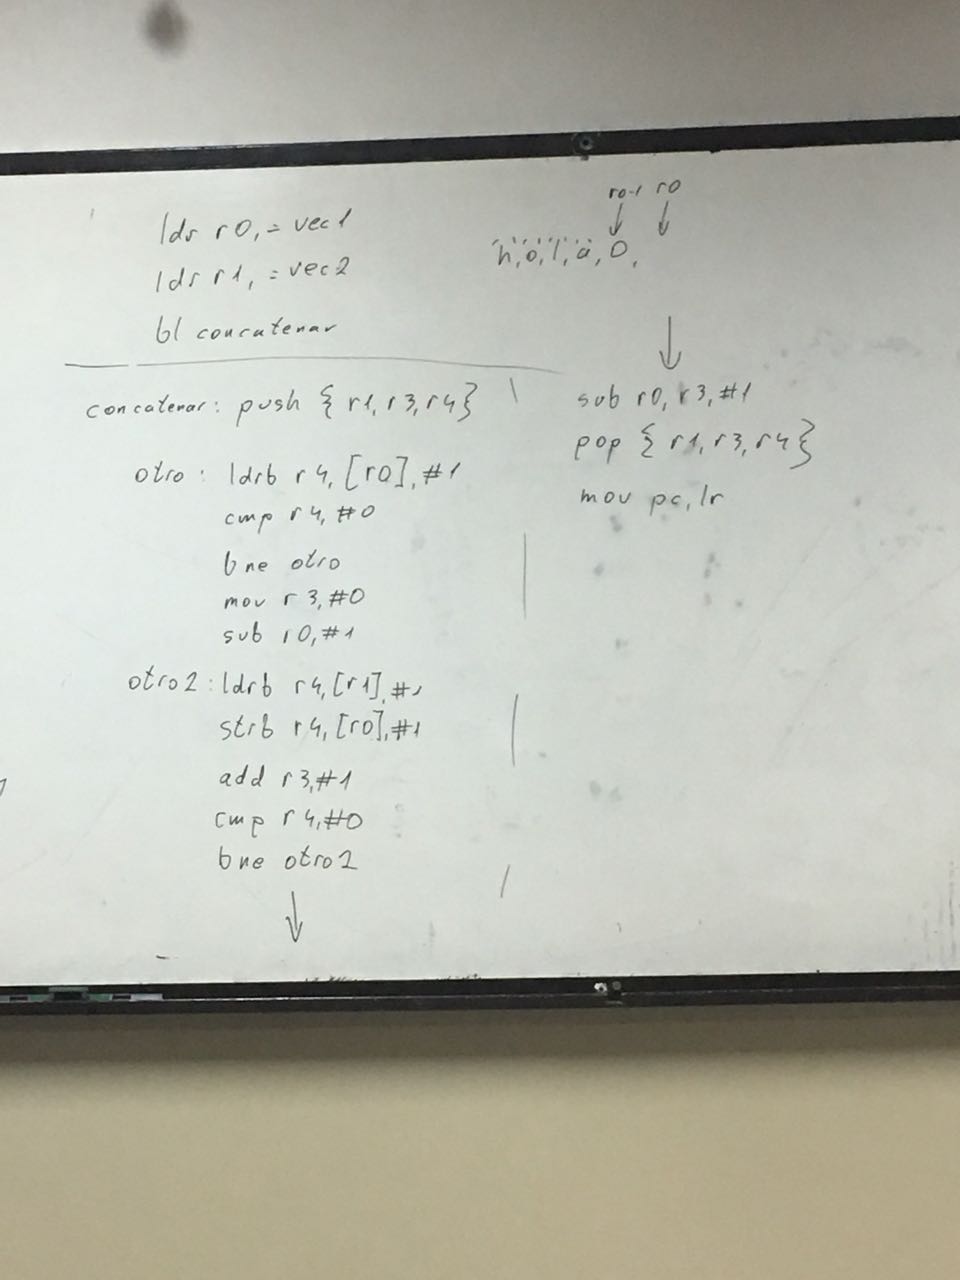 ldr r0, = vec1
ldr r1, = vec2
bl concatenar
concatenar: push { r1, r3, r4}
otro: ldrb r4, [r0], #1
cmp r4, #0
bne otro
mov r3, #0
sub r0, #1
otro2: ldrb r4, [r1], #1
strb r4, [r0], #1
add r3, #1
cmp r4, #0
bne otro2
r0-1 r0
'h','o','l','a', 0,
sub r0, r3, #1
pop { r1, r3, r4}
mov pc, lr